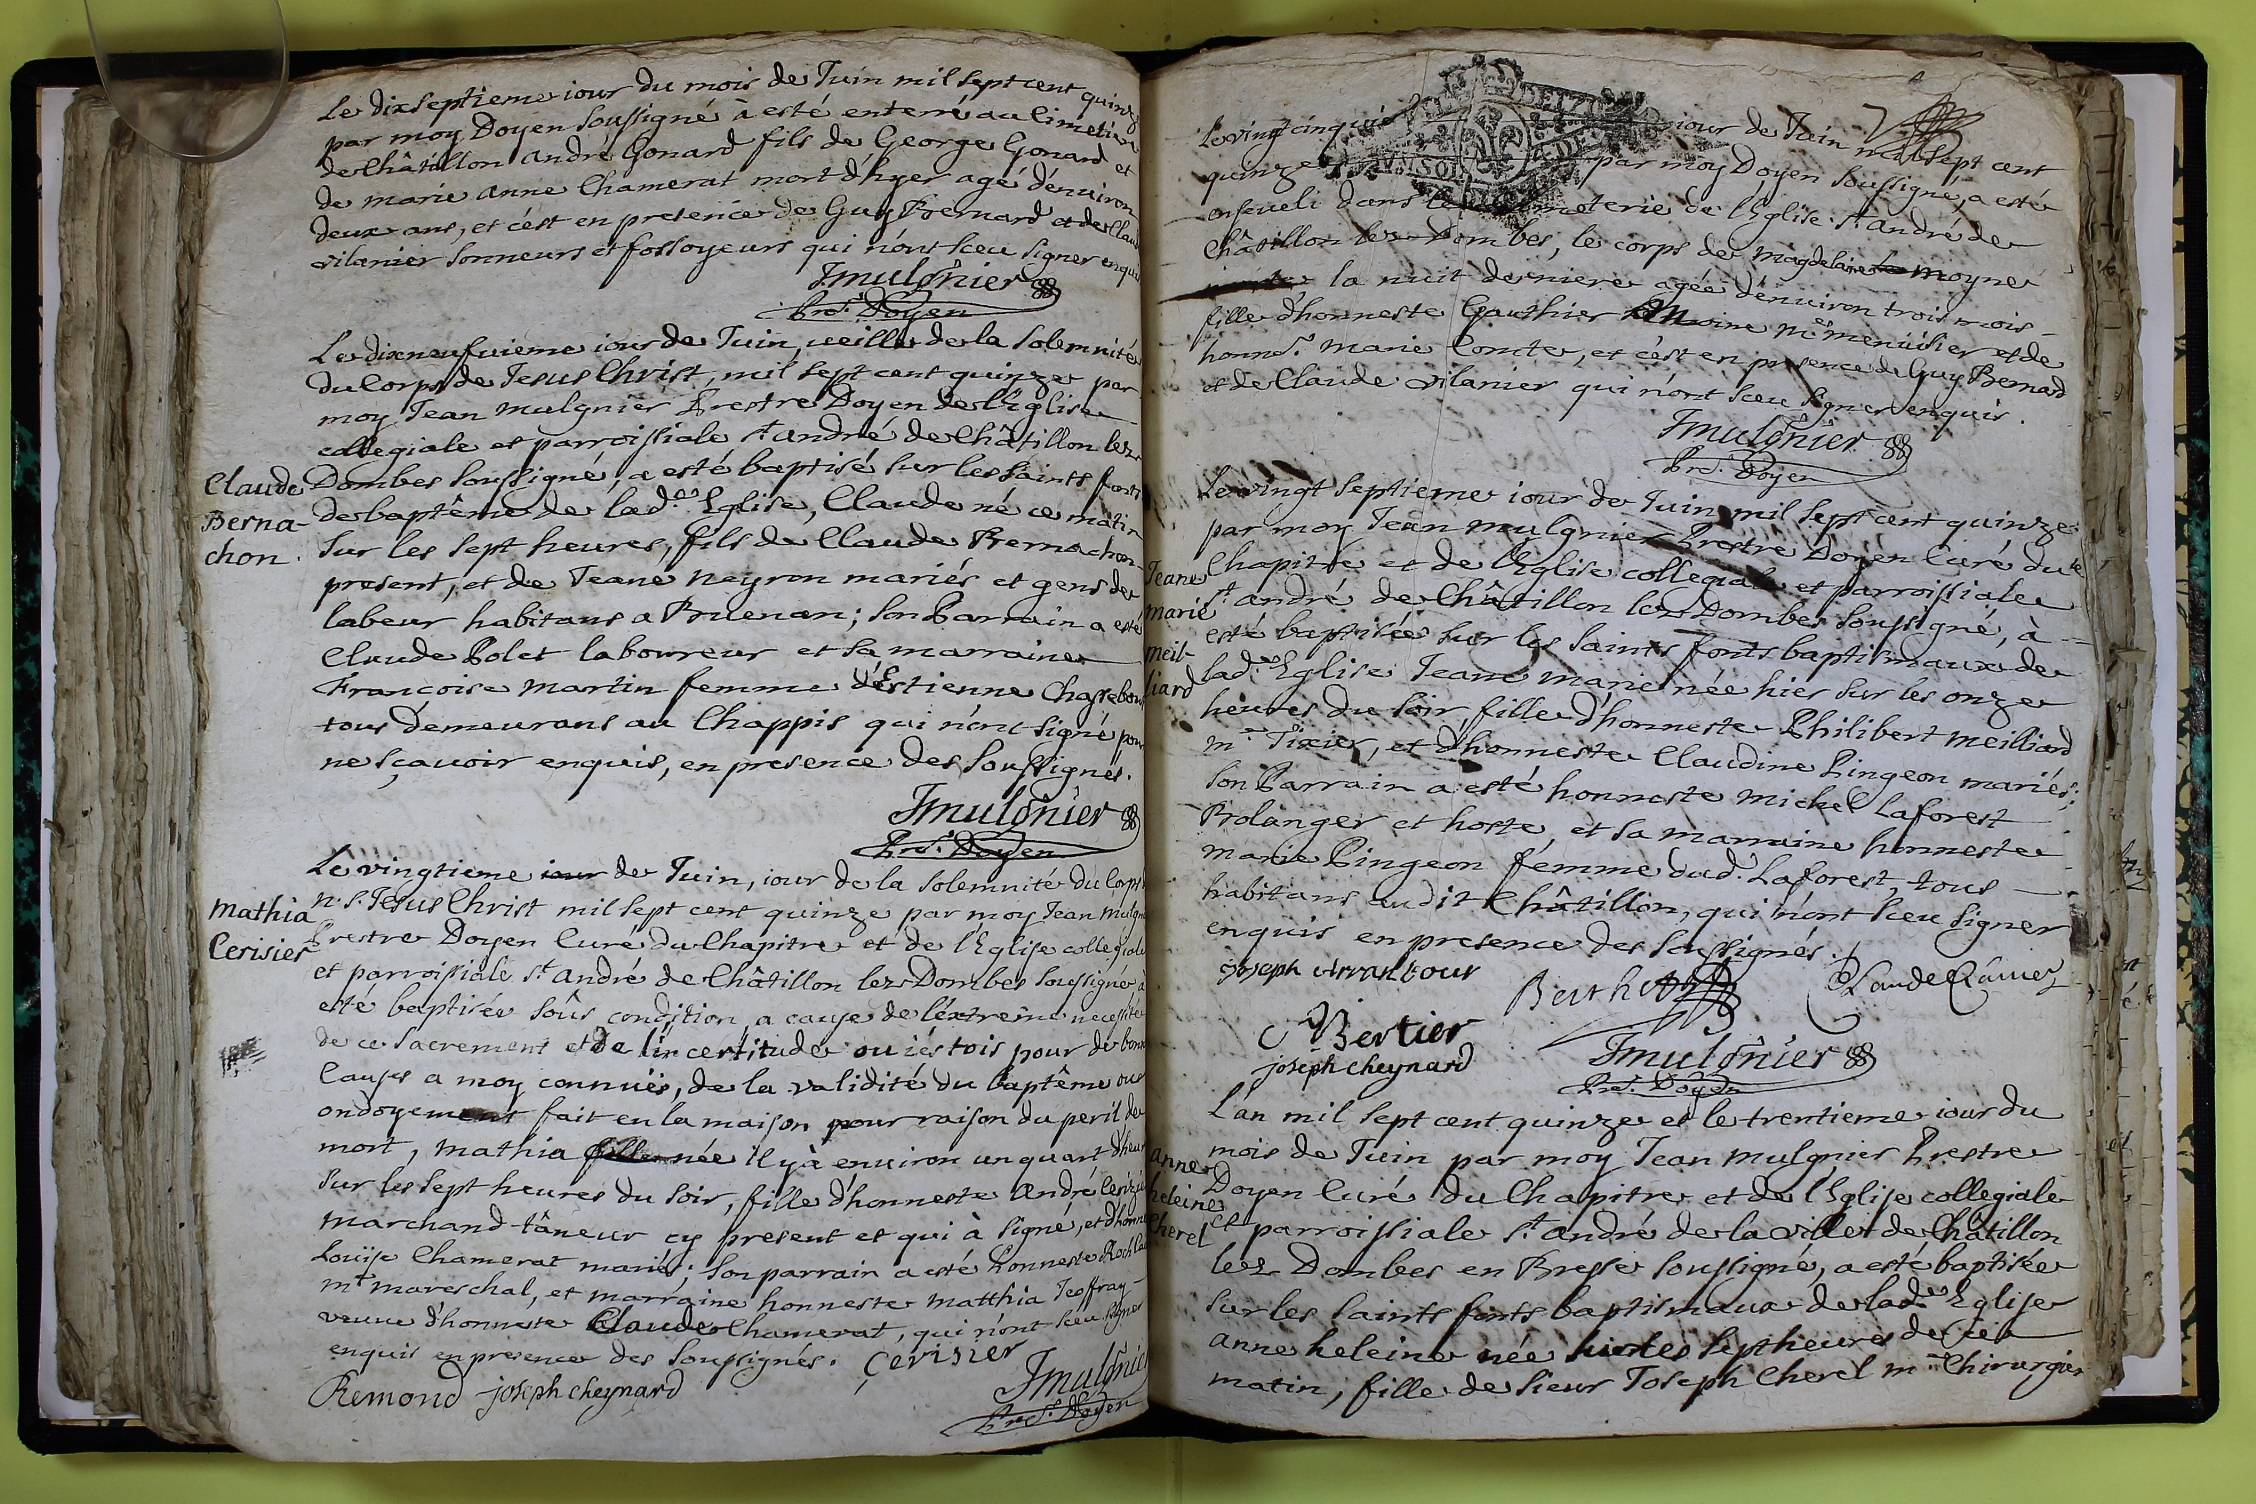 Le dixseptieme iour du mois de Juin mil sept cent quinze
par moy Doyen soussigné à esté enterré au Cimetiere
de Châtillon andré Gonard fils de George Gonard et
de marie anne Chamerat mort d'hyer agé d'enuiron
deux ans, et c'est en presence de Guy Bernard et de Claude
vilanier sonneurs et fossoyeurs qui n'ont sceu signer enquis
Jmulgnier
Pre. Doyen
Le dixneufvieme iour de Juin, veille de la solemnité
du Corps de Jesus Christ, mil sept cent quinze par
moy Jean mulgnier Prestre Doyen de l'Eglise
collegiale et parroissiale st andré de Châtillon lez
Claude
Berna-
chon.
Dombes soussigné, a esté baptisé sur les saints fonts
de baptême de lad.e Eglise, Claude né ce matin
sur les sept heures, fils de Claude Bernachon
present, et de Jeane neyron mariés et gens de
labeur habitans a Buenan; son Parrain a esté
Claude Polet laboureur et sa marraine
Françoise martin femme d'Estienne
tous demeurans au Chappis qui n'ont signé pour
ne sçavoir enquis, en presence des soussignés.
Jmulgnier
Pre. Doyen
Le vingtieme iour de Juin, iour de la solemnité du Corps
mathia
Cerisier
n. s. Jesus Christ mil sept cent quinze par moy Jean mulgnier
Prestre Doyen Curé du Chapitre et de l'Eglise collegiale
et parroissiale st andré de Châtillon lez Dombes soussigné à
esté baptisée sous condition, a cause de l'extreme necessité
de ce sacrement et de l'incertitude ou i'estois pour de bonnes
Causes a moy connuës, de la validité du baptême ou
ondoyement fait en la maison pour raison du peril de
mort, mathia fille née il y à environ un quart d'heure
sur les sept heures du soir, fille d'honneste andré Cerizier
marchand tâneur cy present et qui à signé, et d'honneste
Louïse Chamerat mariés; son parrain a esté honneste Roch
mt mareschal, et marraine honneste matthia Jeoffray
veuue d'honneste Claude Chamerat, qui n'ont sceu signer
enquis en presence des soussignés. Çerisier
Remond joseph cheynard
Jmulgnier
Pre. Doyen
Le vingt cinquié iour de Juin mil sept cent
quinze par moy Doyen soussigné, a esté
enseueli dans le cimeterie de l'Eglise st andré de
Châtillon lez Dombes, le corps de magdelaine moyne
la nuit derniere agée d'enuiron trois mois
fille d'honneste Gauthier Moine me. menuisier et de
honne. marie Comte, et c'est en presence de Guy Bernard
et de Claude vilanier qui n'ont sceu signer enquis.
Jmulgnier
Pre. Doyen
Le vingt septieme iour de Juin mil sept cent quinze
par moy Jean mulgnier Prestre Doyen Curé du
Jeane
marie
meil-
liard
Chapitre et de l'Eglise collegiale et parroissiale
st andré de Châtillon lez Dombes soussigné, à
esté baptisée sur les saints fonts baptismaux de
lad.e Eglise Jeane marie née hier sur les onze
heures du soir, fille d'honneste Philibert meilliard
me Tixier, et d'honneste Claudine Pingeon mariés;
son Parrain a esté honneste michel Laforest
Bolanger et hoste, et sa marraine honneste
marie Pingeon femme dud. Laforest, tous
habitans audit Châtillon, qui n'ont sceu signer
enquis en presence des soussignés.
Berthet
C Bertier
joseph cheynard
Jmulgnier
Pre. Doyen
L'an mil sept cent quinze et le trentieme iour du
anne
heleine
Cherel
mois de Juin par moy Jean mulgnier Prestre
Doyen Curé du Chapitre et de l'Eglise collegiale
et parroissiale st andré de la ville de Châtillon
lez Dombes en Bresse soussigné, a esté baptisée
sur les saints fonts baptismaux de lad.e Eglise
anne heleine née sur les sept heures de ce
matin, fille de sieur Joseph Cherel me Chirurgien